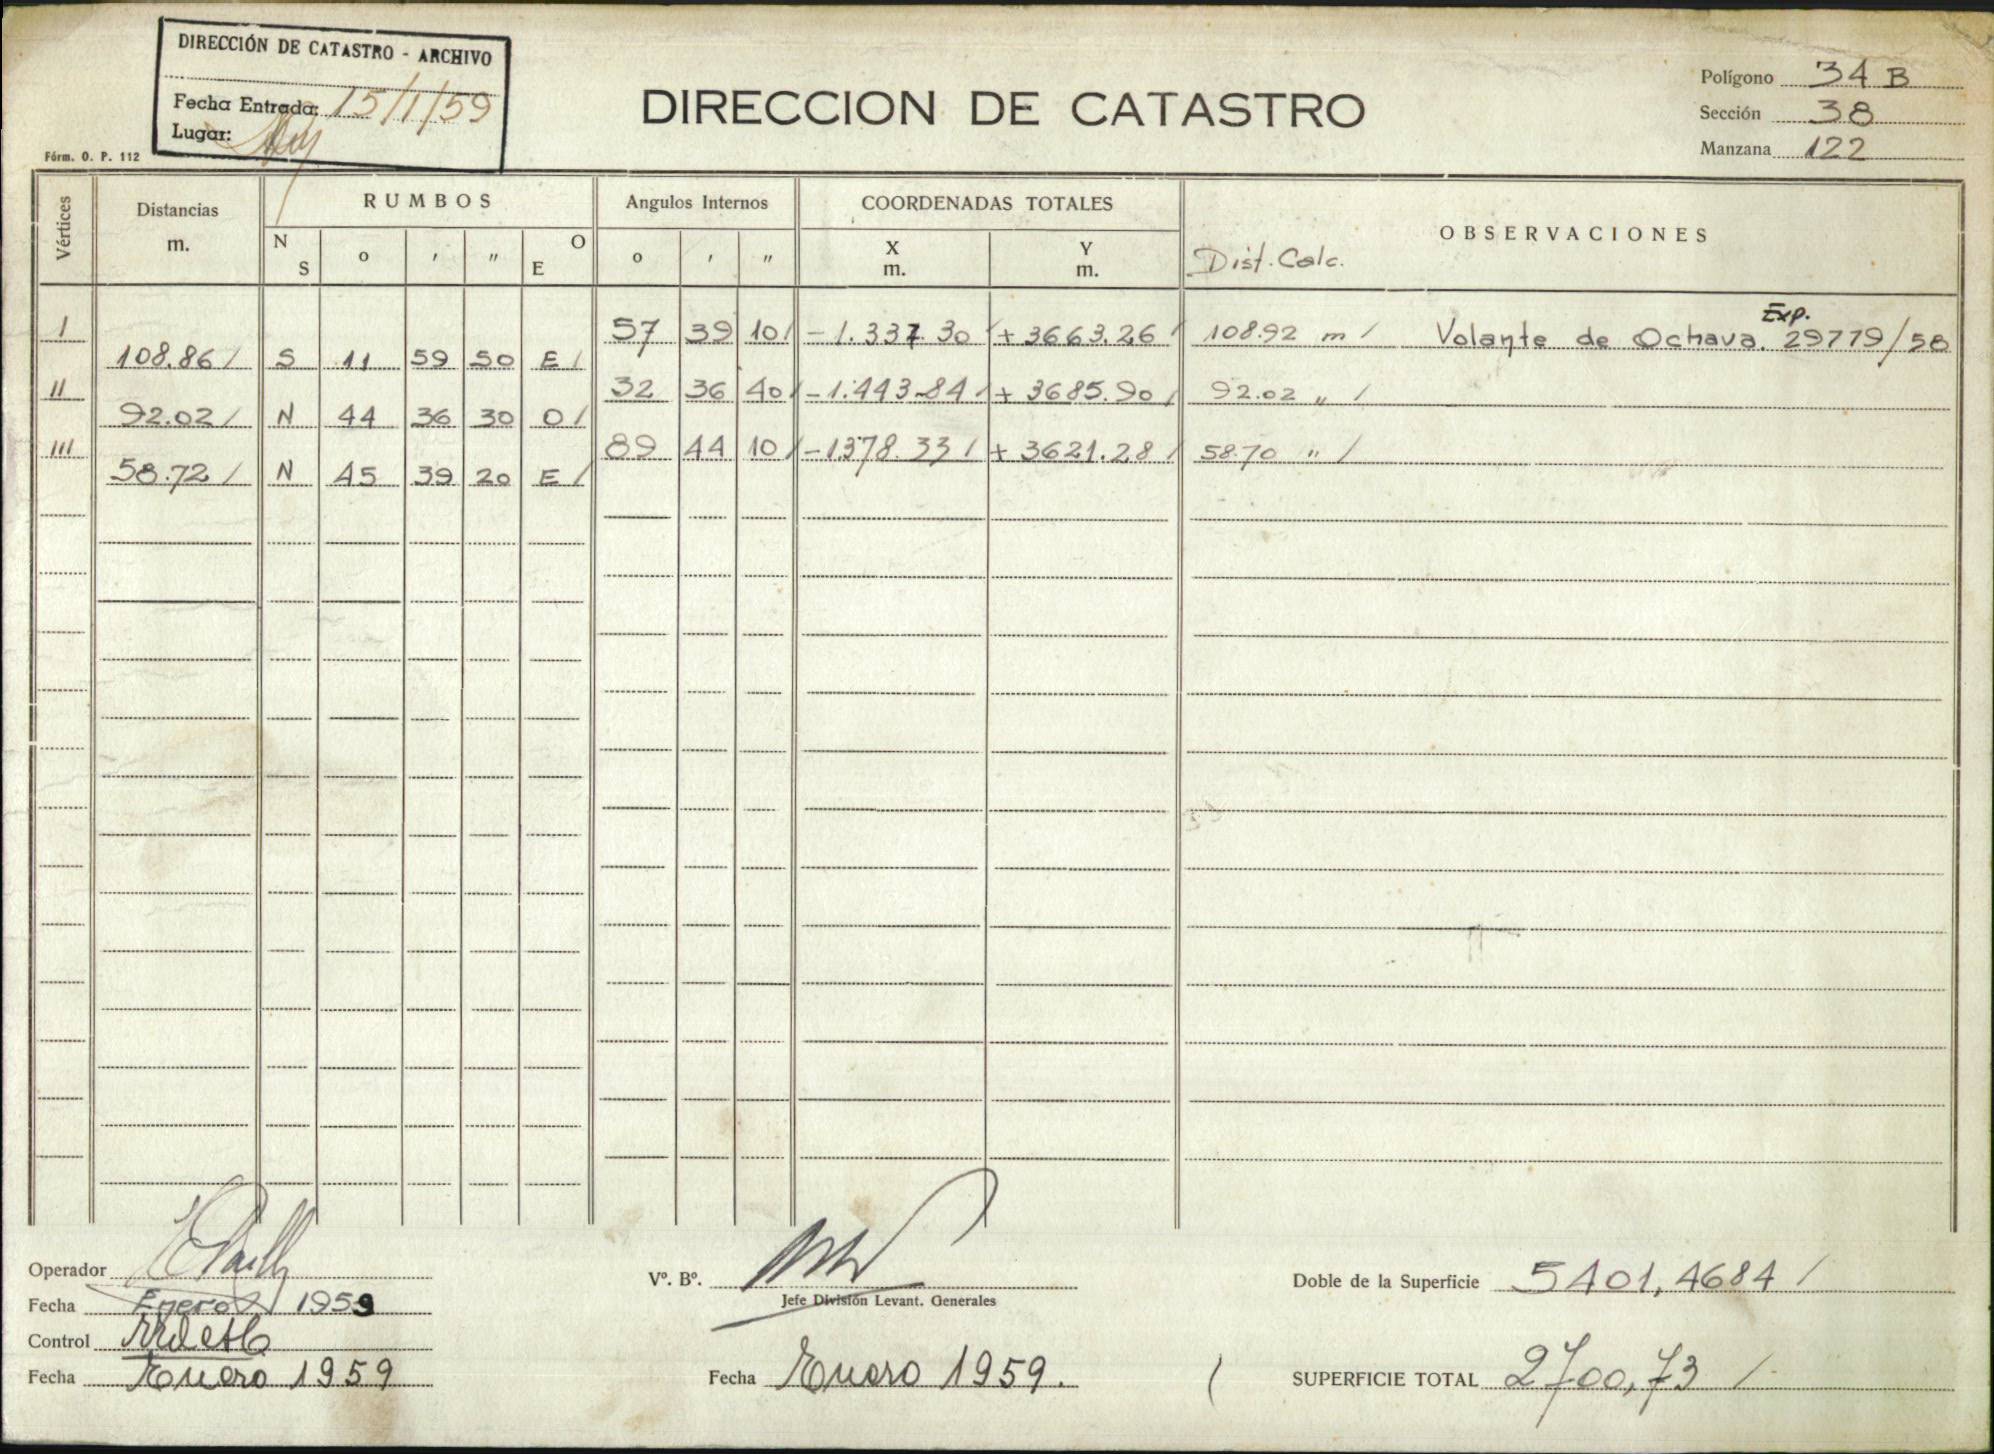 DIRECCIÓN DE CATASTRO - ARCHIVO
Fecha Entrada: 15/1/59
Lugar:
Fórm. O. P. 112
DIRECCION DE CATASTRO
Polígono 34 B
Sección 38
Manzana 122
Vértices Distancias m. RUMBOS N S o ′ ″ O E Angulos Internos o ′ ″ COORDENADAS TOTALES X m. Y m. OBSERVACIONES
Dist. Calc.
I 57 39 10 / - 1.337 30 / + 3663.26 / 108.92 m / Volante de Ochava. Exp. 29779/58
108.86 / S 11 59 50 E /
II 32 36 40 / - 1.443.84 / + 3685.90 / 92.02 " /
92.02 / N 44 36 30 O /
III 89 44 10 / - 1378.33 / + 3621.28 / 58.70 " /
58.72 / N 45 39 20 E /
Operador
Fecha Enero 1959
Control
Fecha Enero 1959
Vº. Bº.
Jefe División Levant. Generales
Fecha Enero 1959.
Doble de la Superficie 5401,4684 /
SUPERFICIE TOTAL 2700,73 /